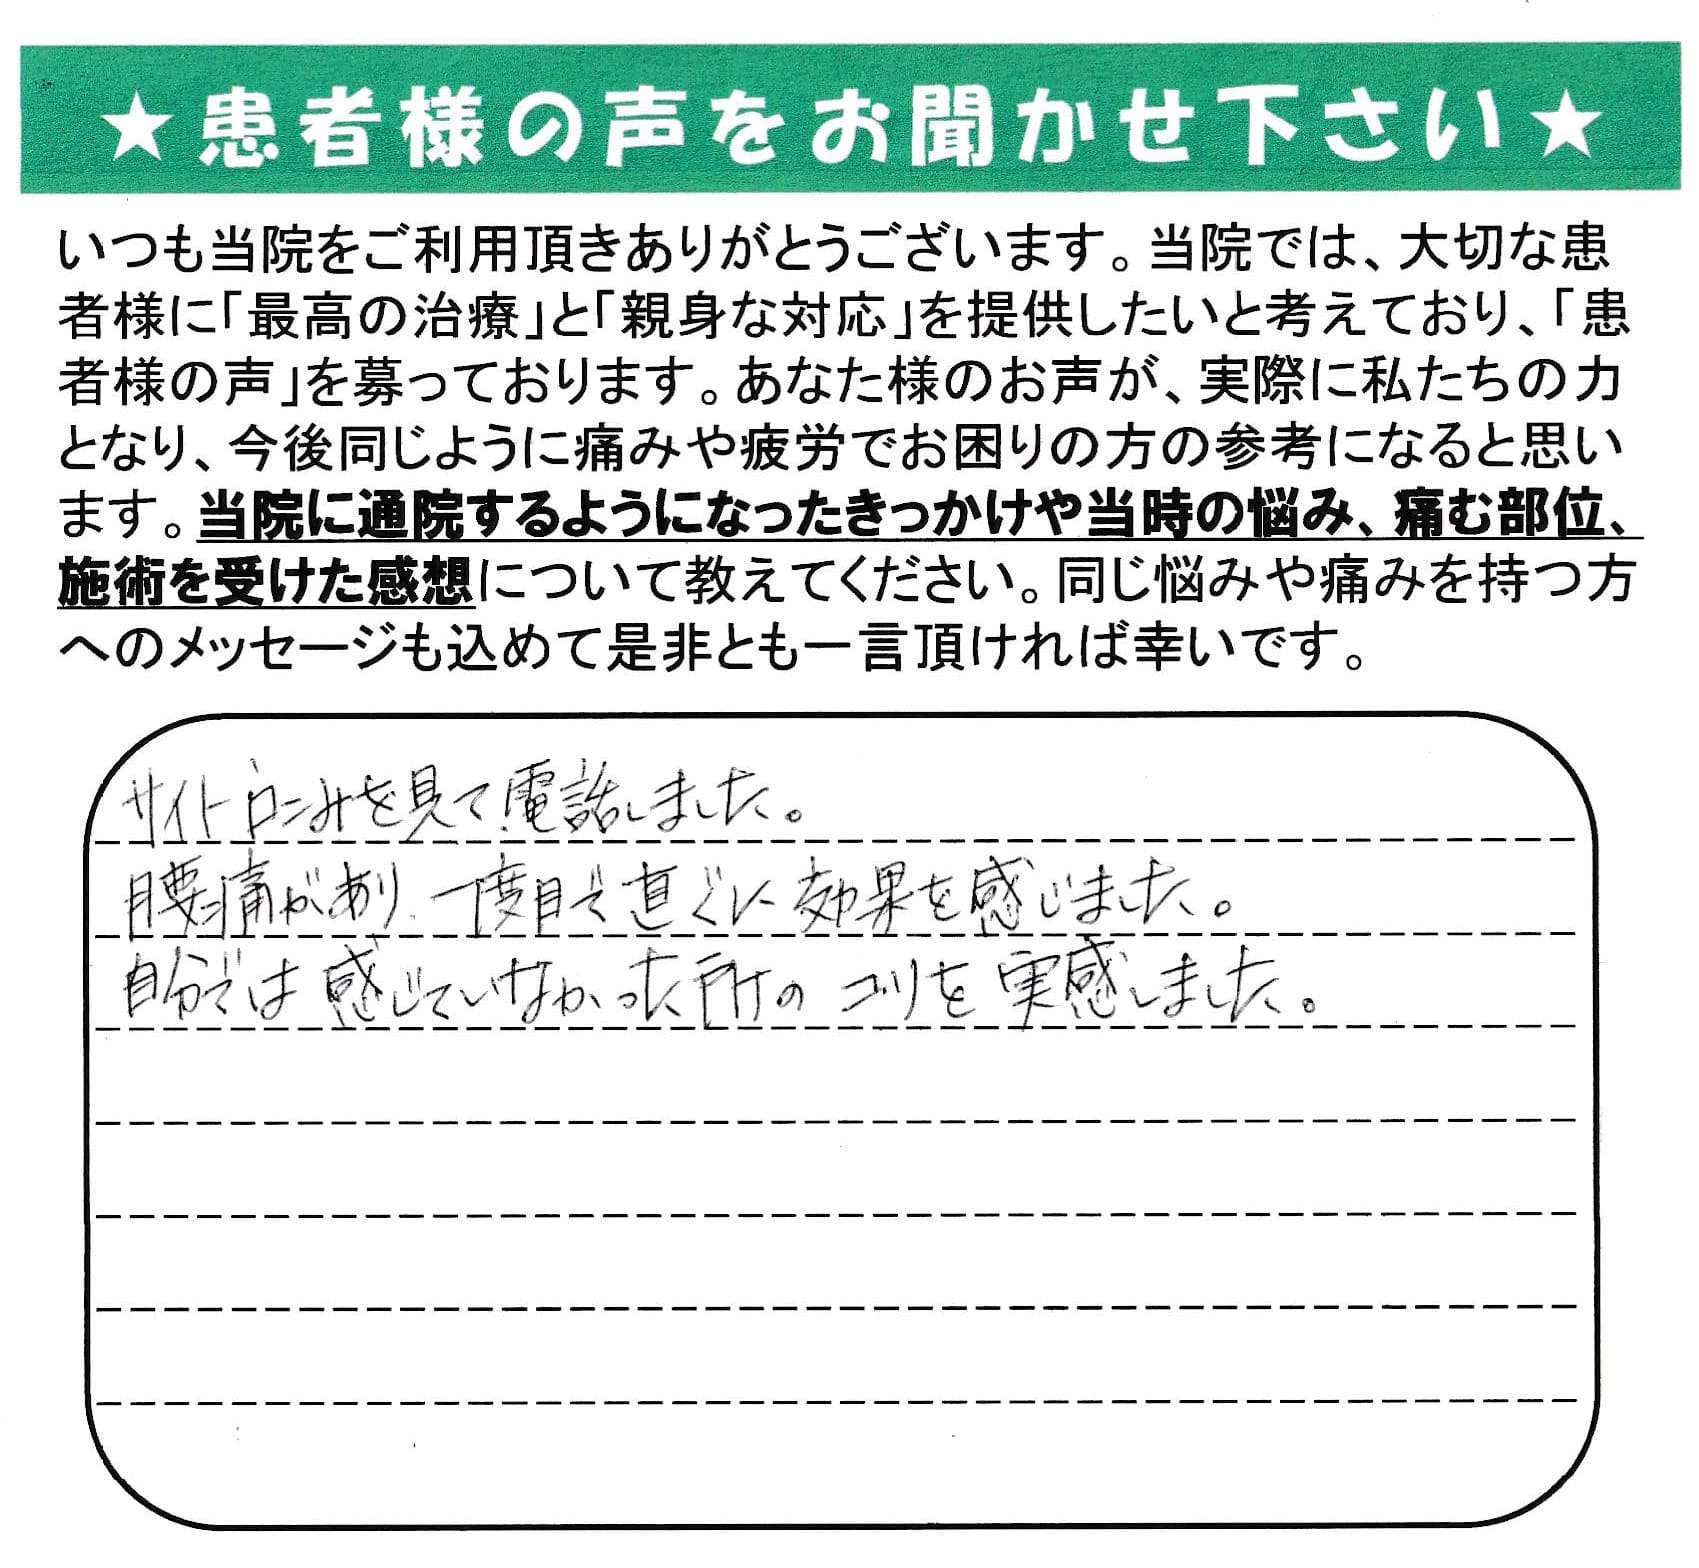 ★患者様の声をお聞かせ下さい★
いつも当院をご利用頂きありがとうございます。当院では、大切な患
者様に「最高の治療」と「親身な対応」を提供したいと考えており、「患
者様の声」を募っております。あなた様のお声が、実際に私たちの力
となり、今後同じように痛みや疲労でお困りの方の参考になると思い
ます。当院に通院するようになったきっかけや当時の悩み、痛む部位、
施術を受けた感想について教えてください。同じ悩みや痛みを持つ方
へのメッセージも込めて是非とも一言頂ければ幸いです。
サイト口コミを見て電話しました。
腰痛があり、一度目で直ぐに効果を感じました。
自分では感じていなかった所のコリを実感しました。